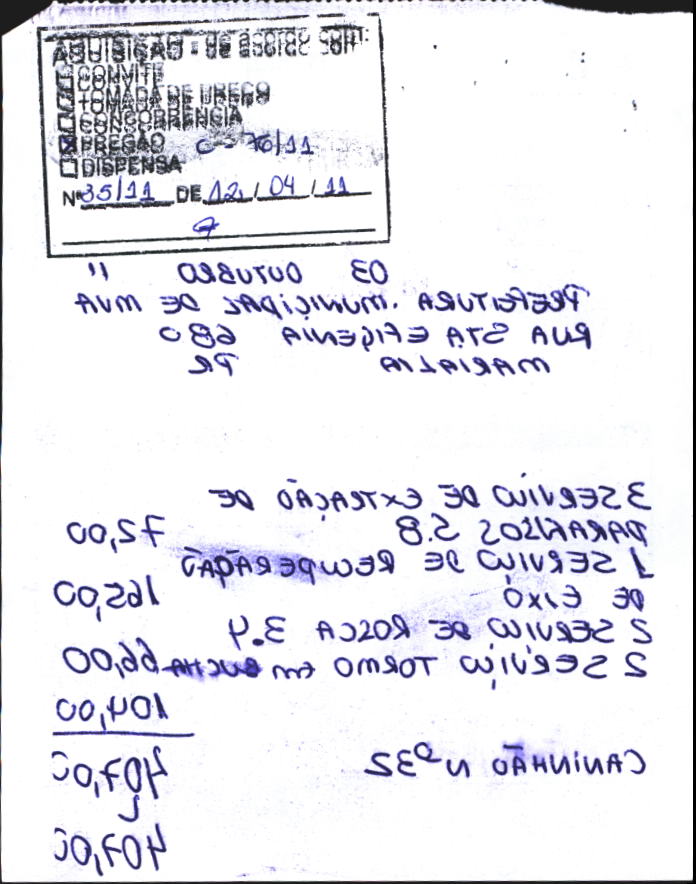 AQUISIÇÃO - de acordo com:
CONVITE
TOMADA DE PREÇO
CONCORRÊNCIA
PREGÃO C - 76/11
DISPENSA
Nº 35/11 DE 12 / 04 / 11
03 OUTUBRO 11
PREFEITURA MUNICIPAL DE MVA
RUA STA EFIGENIA 680
MARIALVA PR
3 SERVIÇO DE EXTRAÇÃO DE
PARAFUSOS 5.8 72,00
1 SERVIÇO DE RECUPERAÇÃO
DE EIXO 165,00
2 SERVIÇO DE ROSCA 3.4
2 SERVIÇO TORMO em BUCHA 66,00
104,00
CAMINHÃO Nº 32 407,00
407,00